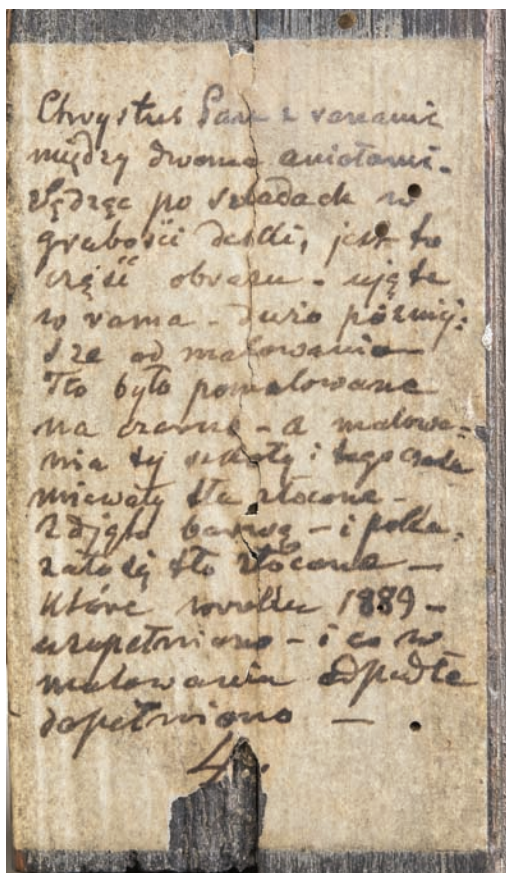 Chrystus Pan z ranami
między dwoma aniołami -
Sądząc po śladach w
grubości deski, jest to
część obrazu - ujęta
w rama - dużo później:
sze od malowania
Tło było pomalowane
na czarno - a malowa-
nia tej szkoły i tego czasu
miewały tła złocone -
zdjęto barwę - i poka,
zało się tło złocone -
które w roku 1889 -
uzupełniono - i co w
malowaniu odpadło
dopełniono —
4.